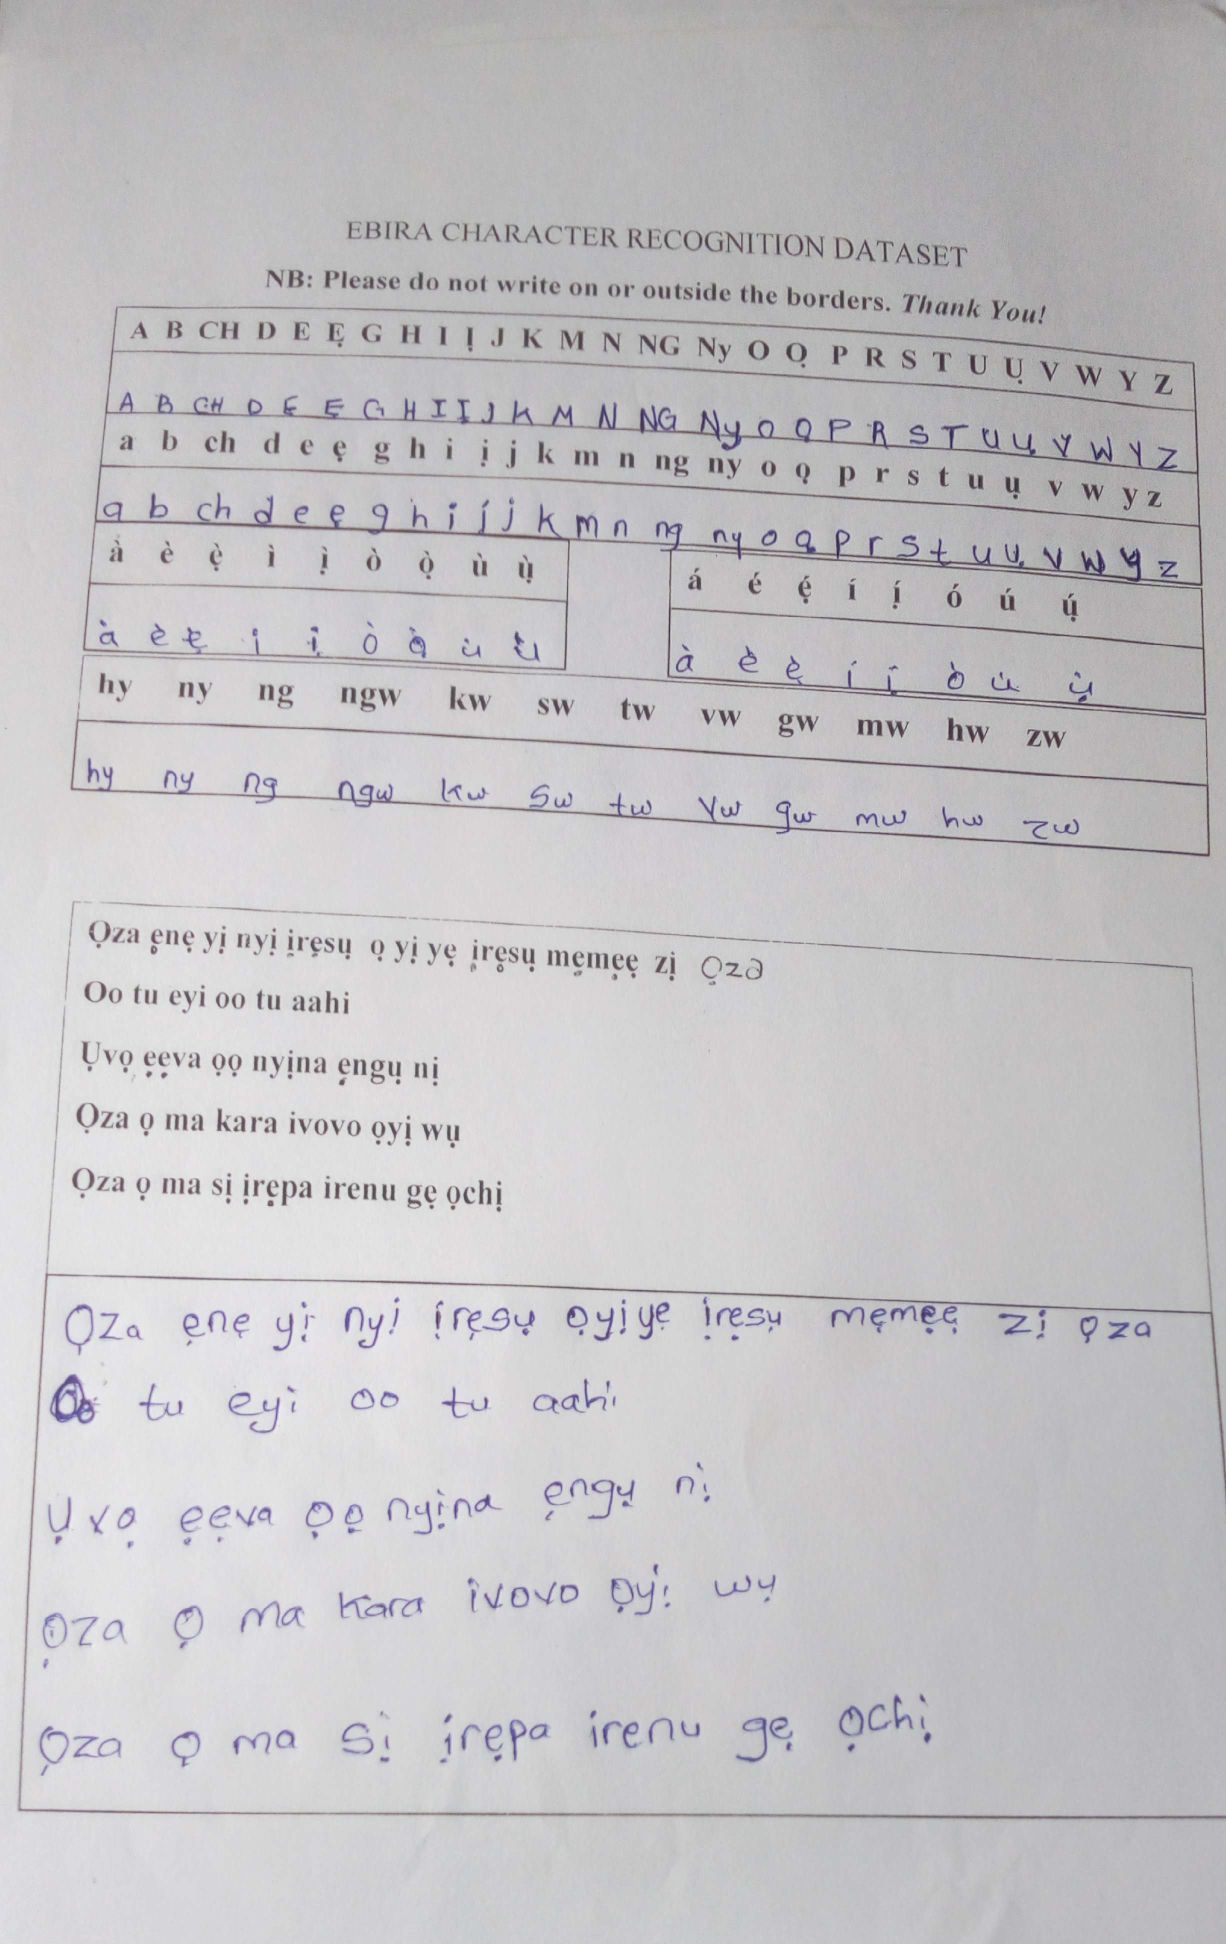 EBIRA CHARACTER RECOGNITION DATASET
NB: Please do not write on or outside the borders. Thank You!
A B CH D E Ẹ G H I Ị J K M N NG Ny O Ọ P R S T U Ụ V W Y Z
A B CH D E Ẹ G H I Ị J K M N NG Ny O Ọ P R S T U Ụ V W Y Z
a b ch d e ẹ g h i ị j k m n ng ny o ọ p r s t u ụ v w y z
a b ch d e ẹ g h i ị j k m n ng ny o ọ p r s t u ụ v w y z
à è ẹ̀ ì ị̀ ò ọ̀ ù ụ̀
á é ẹ́ í ị́ ó ú ụ́
à è ẹ̀ ì ị̀ ò ọ̀ ù ụ̀
à è ẹ̀ í ị́ ò ù ụ̀
hy ny ng ngw kw sw tw vw gw mw hw zw
hy ny ng ngw kw sw tw vw gw mw hw zw
Ọza ẹnẹ yị nyị ịrẹsụ ọ yị yẹ ịrẹsụ mẹmẹẹ zị ọza
Oo tu eyi oo tu aahi
Ụvọ ẹẹva ọọ nyịna ẹngụ nị
Ọza ọ ma kara ivovo ọyị wụ
Ọza ọ ma sị ịrẹpa irenu gẹ ọchị
Ọza ẹnẹ yị nyị ịrẹsụ ọyịyẹ ịrẹsụ mẹmẹẹ zị ọza
Oo tu eyi oo tu aahi
Ụvọ ẹẹva ọọ nyịna ẹngụ nị
Ọza ọ ma kara ivovo ọyị wụ
Ọza ọ ma sị ịrẹpa irenu gẹ ọchị